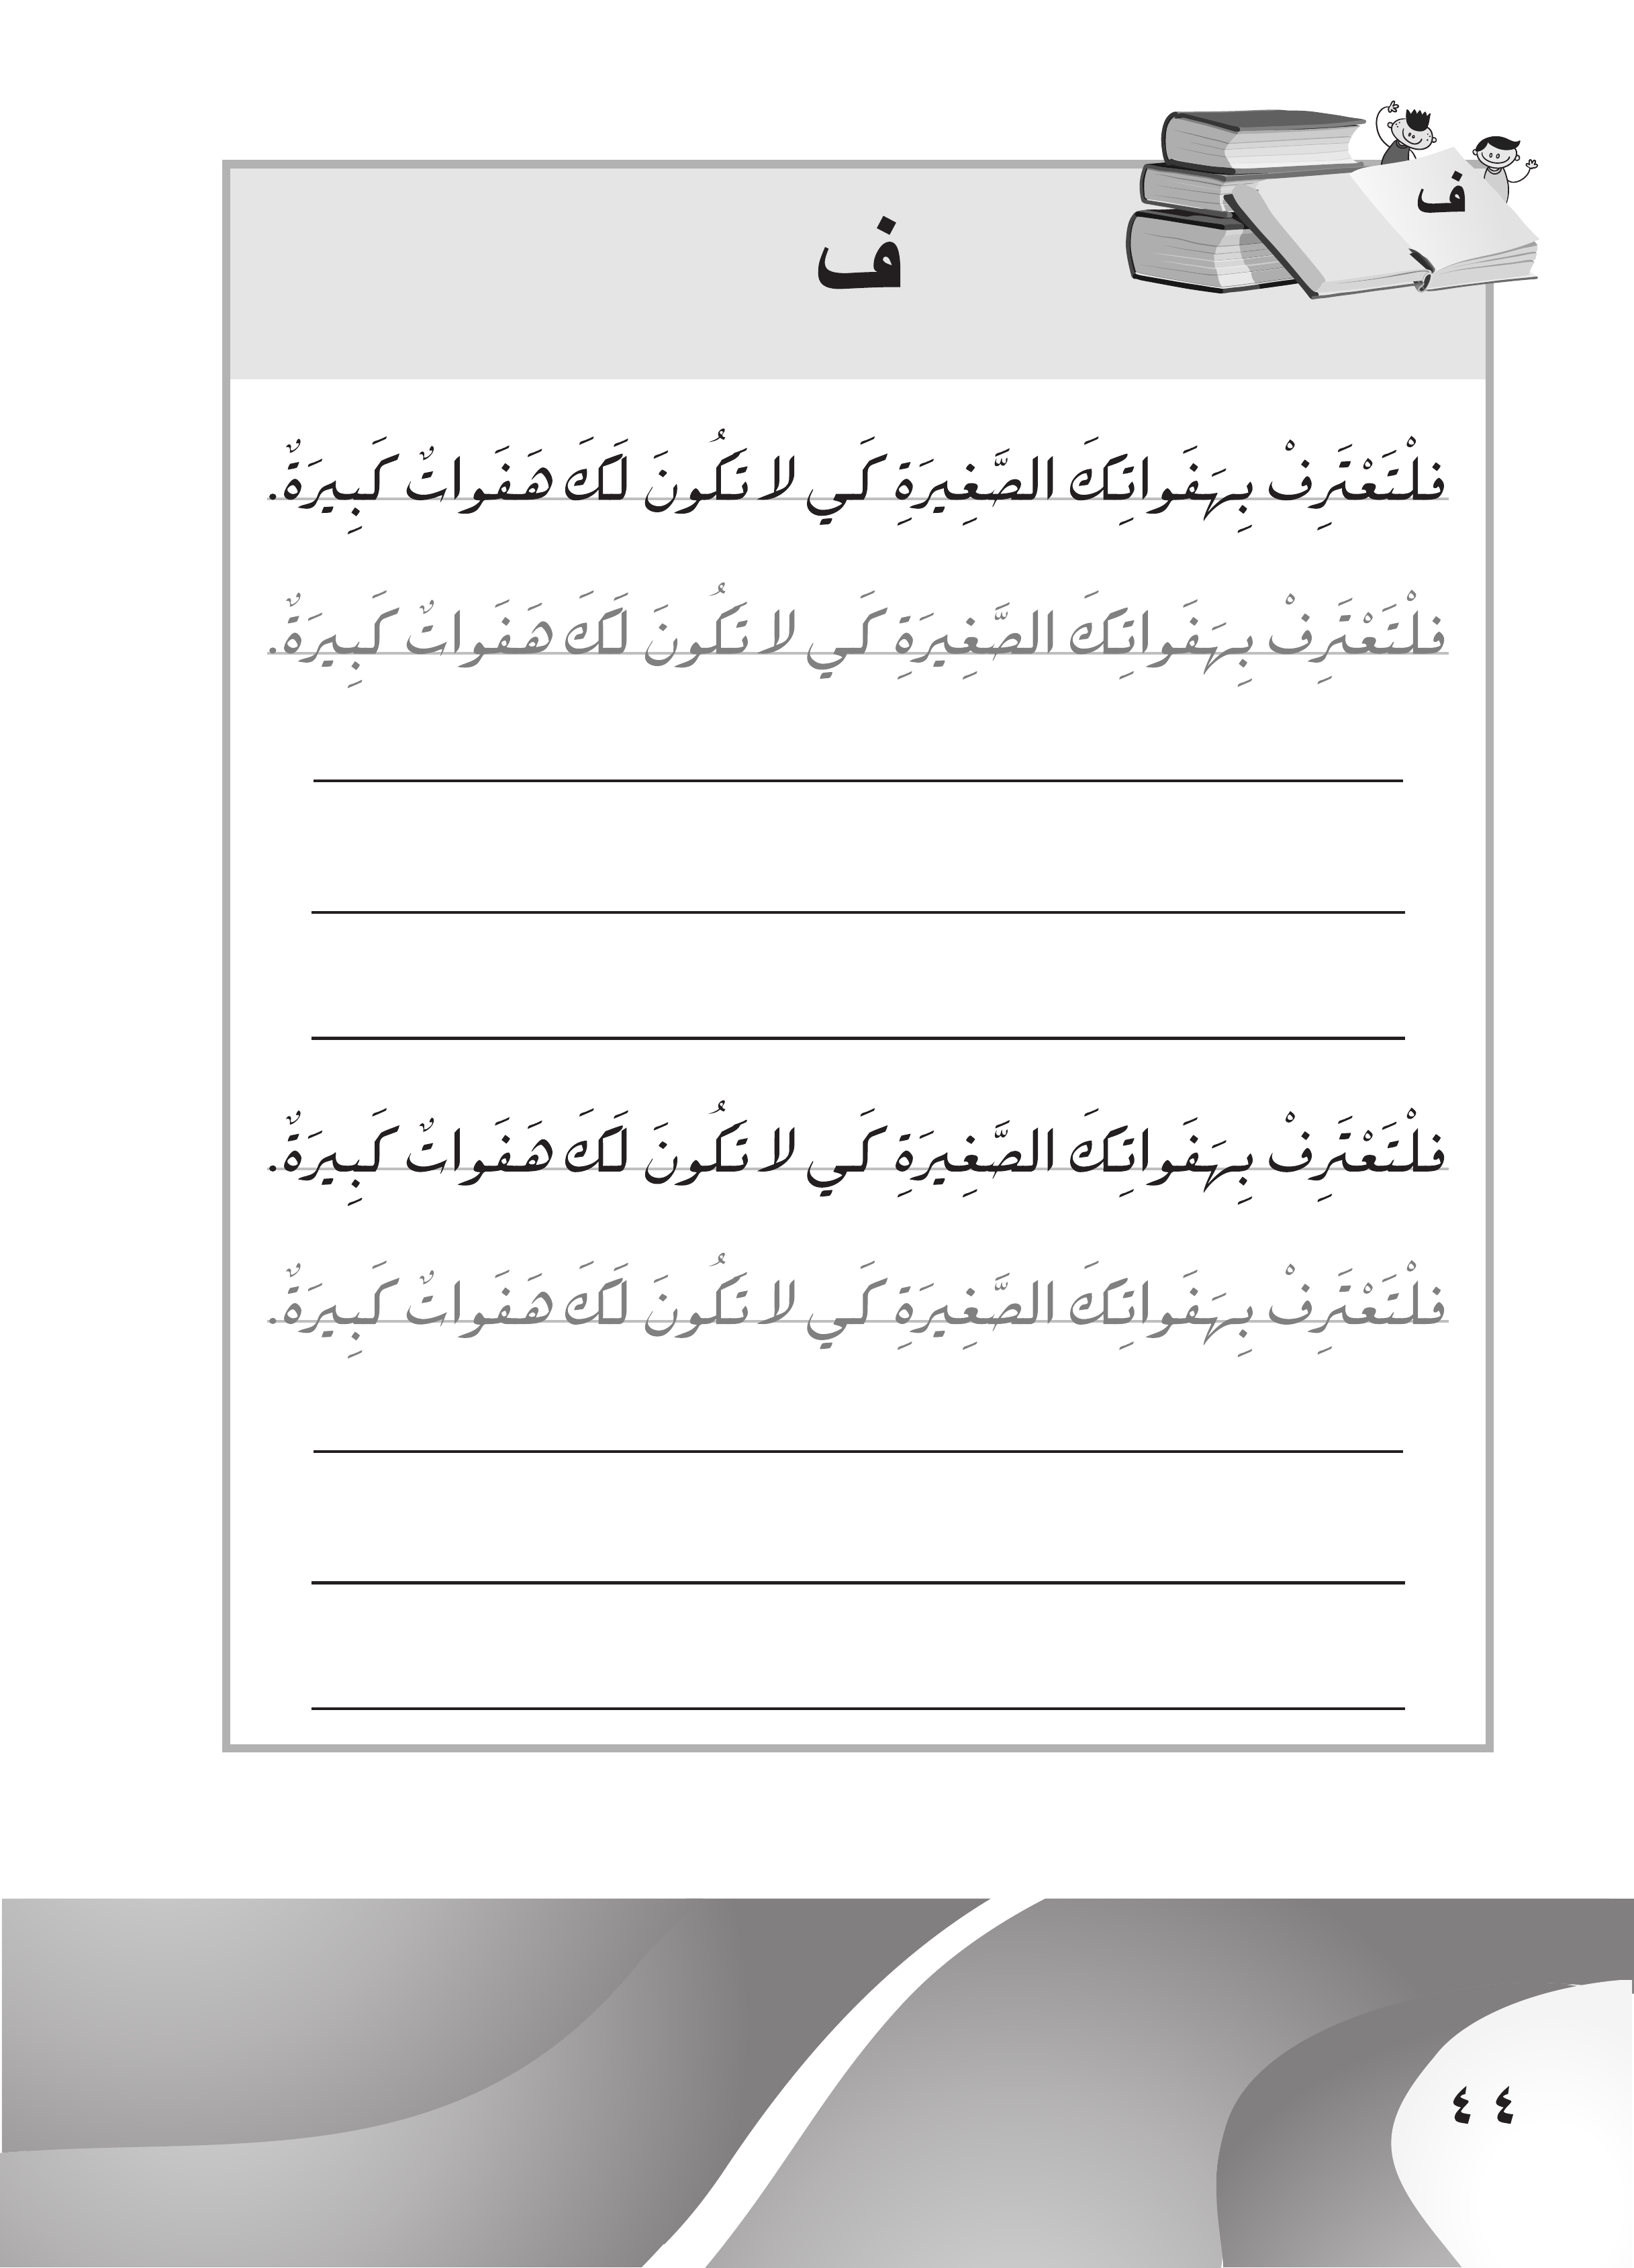 ف
ف
فلْتَعْتَرِفْ بِهَفَواتِكَ الصَّغِيرَةِ كَي لا تَكُونَ لَكَ هَفَواتٌ كَبِيرَةٌ.
فلْتَعْتَرِفْ بِهَفَواتِكَ الصَّغِيرَةِ كَي لا تَكُونَ لَكَ هَفَواتٌ كَبِيرَةٌ.
فلْتَعْتَرِفْ بِهَفَواتِكَ الصَّغِيرَةِ كَي لا تَكُونَ لَكَ هَفَواتٌ كَبِيرَةٌ.
فلْتَعْتَرِفْ بِهَفَواتِكَ الصَّغِيرَةِ كَي لا تَكُونَ لَكَ هَفَواتٌ كَبِيرَةٌ.
٤٤